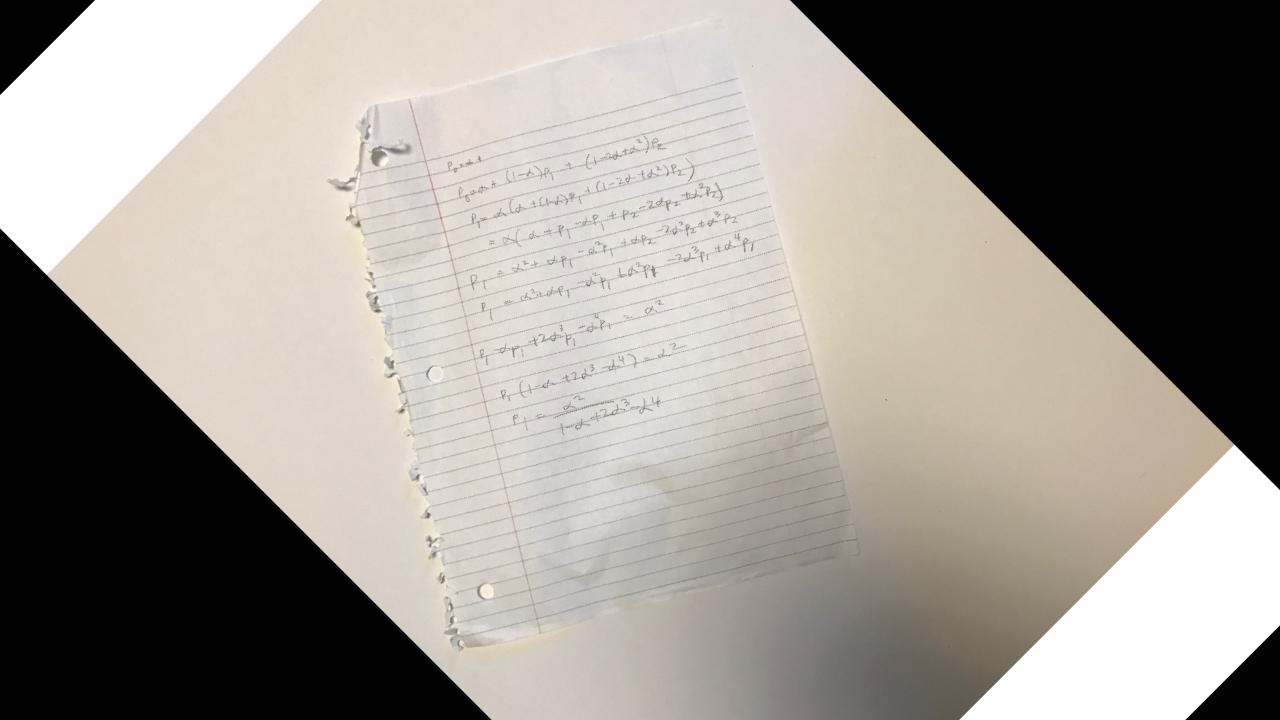 P₀=α+
P₀=α+ (1-α)P₁ + (1-2α+α²)P₂
P₁= α(α+(1-α)P₁+(1-2α+α²)P₂)
= α(α+P₁-αP₁+P₂-2αP₂+α²P₂)
P₁ = α²+αP₁-α²P₁+αP₂-2α²P₂+α³P₂
P₁ = α²+αP₁-α²P₁+α²P₁-2α³P₁+α⁴P₁
P₁-αP₁+2α³P₁-α⁴P₁ = α²
P₁(1-α+2α³-α⁴)=α²
P₁ = α²/(1-α+2α³-α⁴)